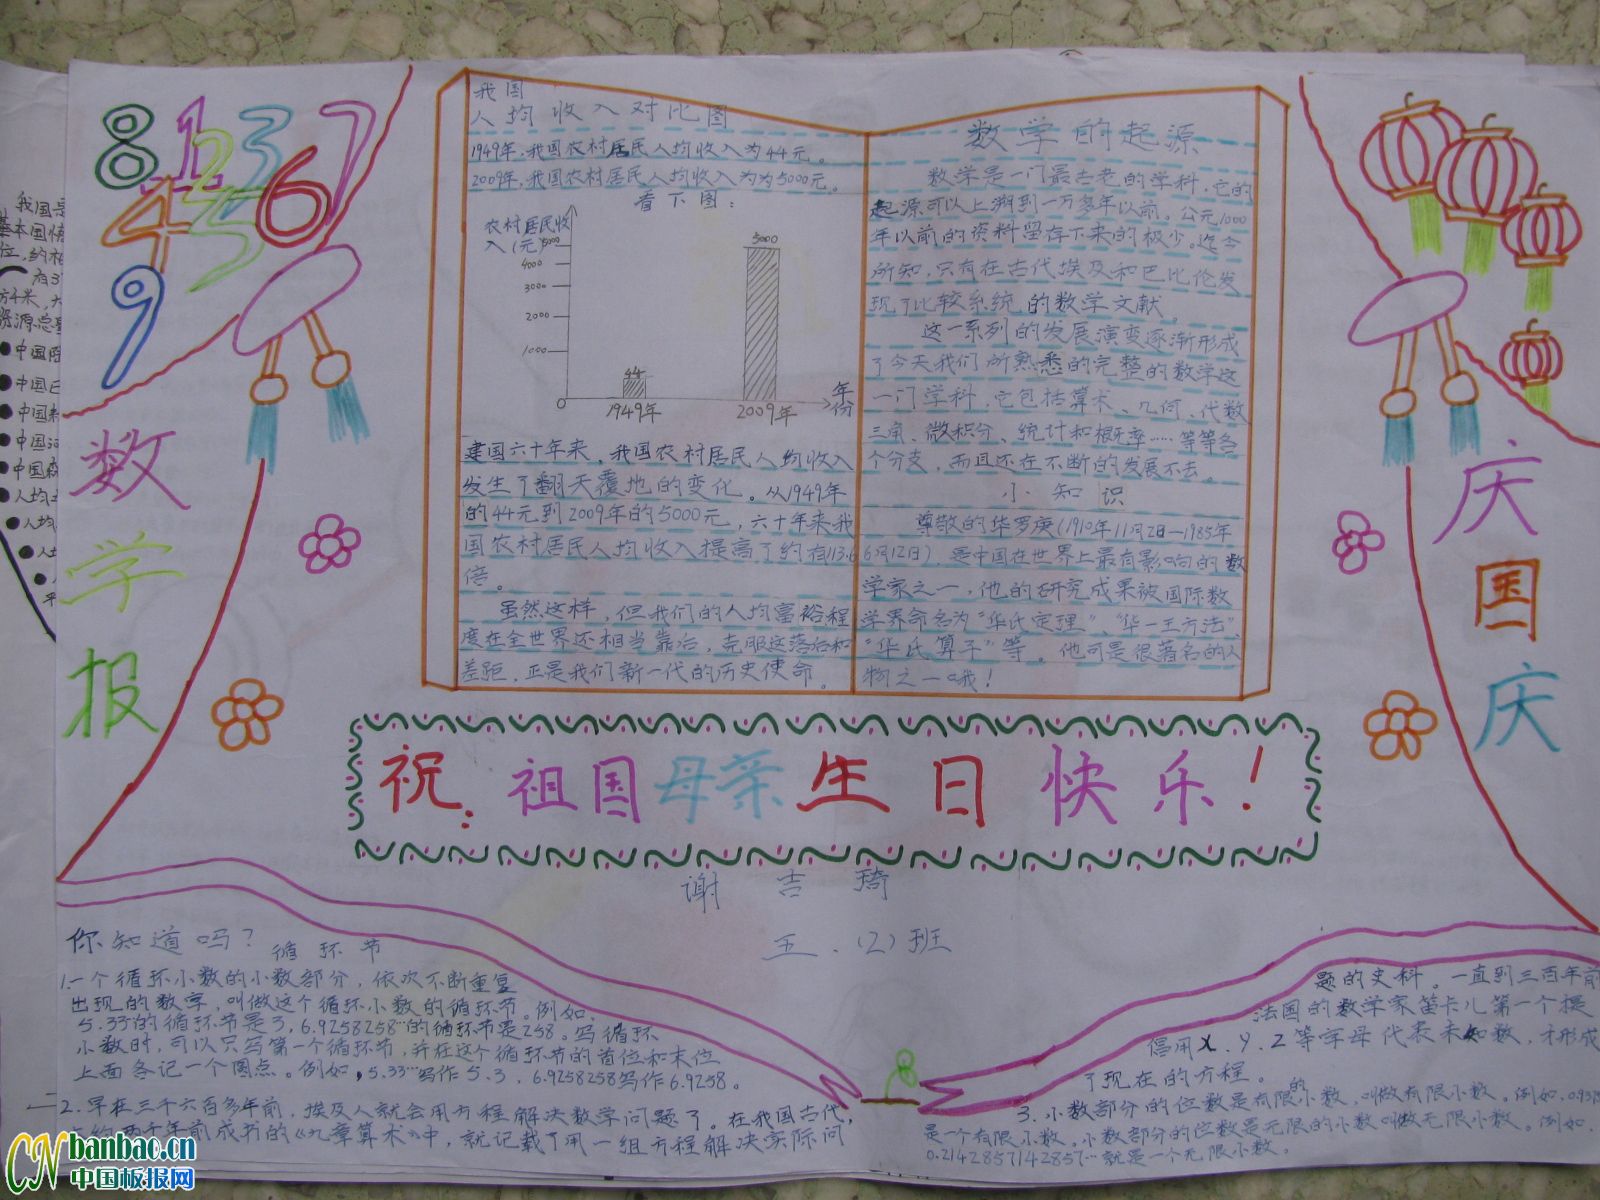 8 1 2 3 7
4 5 6
9
数
学
报
我国
人均收入对比图
1949年,我国农村居民人均收入为44元。
2009年,我国农村居民人均收入为为5000元。
看下图:
农村居民收
入(元)
5000
4000
3000
2000
1000
0
44
5000
1949年
2009年
年
份
建国六十年来,我国农村居民人均收入
发生了翻天覆地的变化。从1949年
的44元到2009年的5000元,六十年来我
国农村居民人均收入提高了约有113.6
倍。
虽然这样,但我们的人均富裕程
度在全世界还相当靠后,克服这落后和
差距,正是我们新一代的历史使命。
数学的起源
数学是一门最古老的学科,它的
起源可以上溯到一万多年以前。公元1000
年以前的资料留存下来的极少。迄今
所知,只有在古代埃及和巴比伦发
现了比较系统的数学文献。
这一系列的发展演变逐渐形成
了今天我们所熟悉的完整的数学这
一门学科,它包括算术、几何、代数
三角、微积分、统计和概率……等等各
个分支,而且还在不断的发展下去。
小知识
尊敬的华罗庚(1910年11月2日—1985年
6月12日),是中国在世界上最有影响的数
学家之一,他的研究成果被国际数
学界命名为“华氏定理”、“华—王方法”、
“华氏算子”等。他可是很著名的人
物之一哦!
庆
国
庆
祝:祖国母亲生日快乐!
谢吉琦
五.(2)班
你知道吗?
循环节
1.一个循环小数的小数部分,依次不断重复
出现的数字,叫做这个循环小数的循环节。例如、
5.33…的循环节是3,6.9258258…的循环节是258。写循环
小数时,可以只写第一个循环节,并在这个循环节的首位和末位
上面各记一个圆点。例如,5.33…写作5.3,6.9258258写作6.9258。
2.早在三千六百多年前,埃及人就会用方程解决数学问题了。在我国古代,
大约两千年前成书的《九章算术》中,就记载了用一组方程解决实际问
题的史科。一直到三百年前
法国的数学家笛卡儿第一个提
倡用X、y、Z等字母代表未知数,才形成
了现在的方程。
3.小数部分的位数是有限的小数,叫做有限小数。例如、0.9375
是一个有限小数。小数部分的位数是无限的小数叫做无限小数。例如、
0.2142857142857…就是一个无限小数。
我国是
基本国情
位,约相
资源总量
中国
中国
中国
中国
中国森
人均
人均
CN banbao.cn
中国板报网